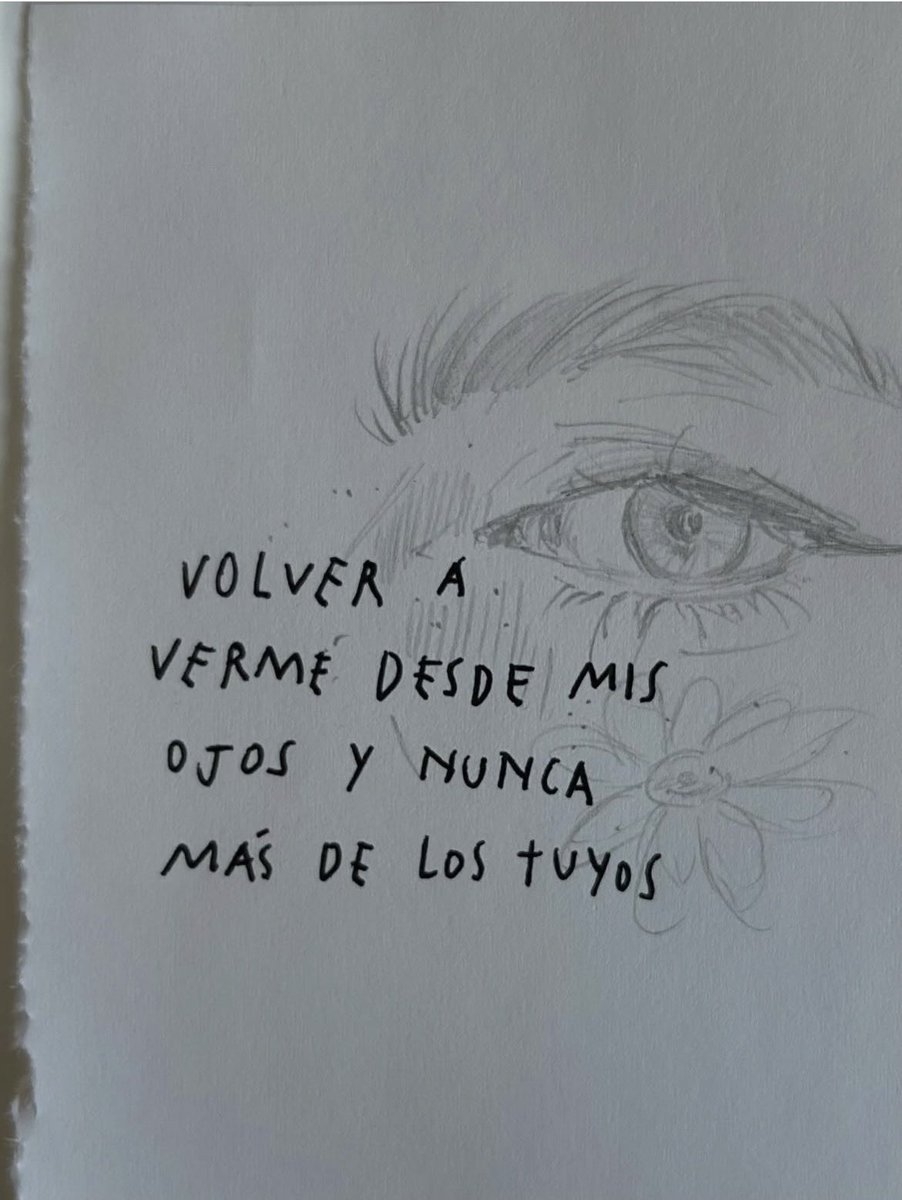 VOLVER A
VERME DESDE MIS
OJOS Y NUNCA
MÁS DE LOS TUYOS